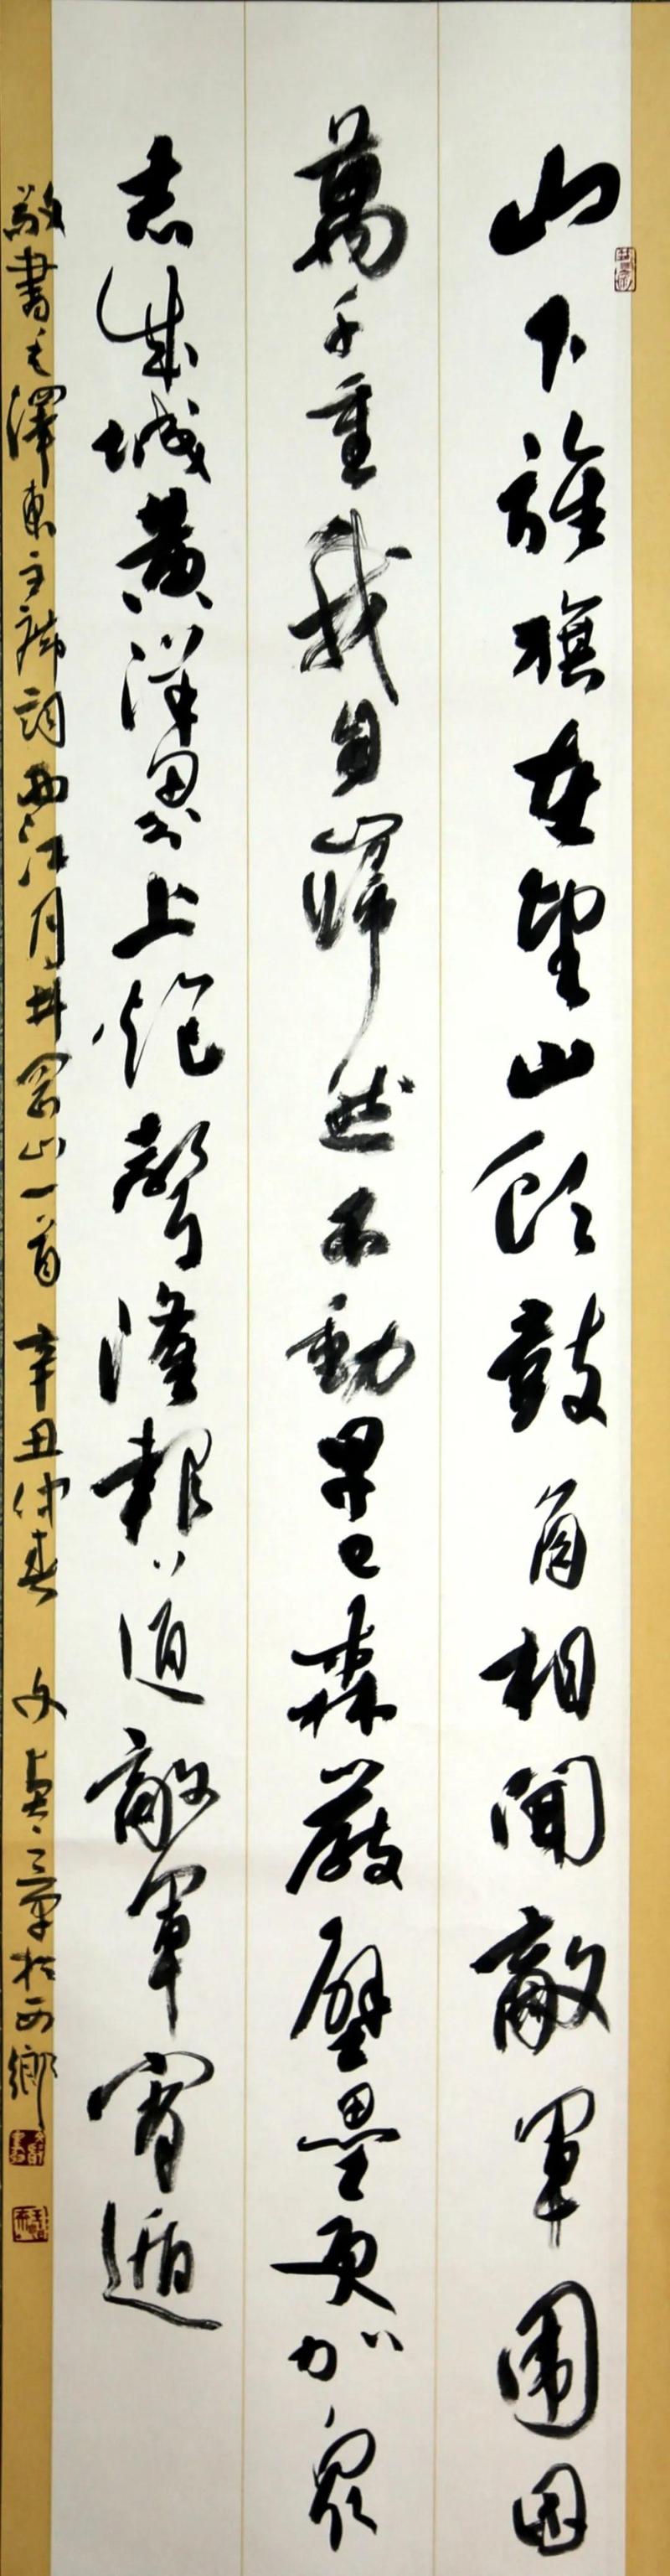 山下旌旗在望山頭鼓角相聞敵軍圍困
萬千重我自巋然不動早已森嚴壁壘更加眾
志成城黃洋界上炮聲隆報道敵軍宵遁
敬書毛澤東主席詞西江月井岡山一首 辛丑仲春 文 章於西鄉